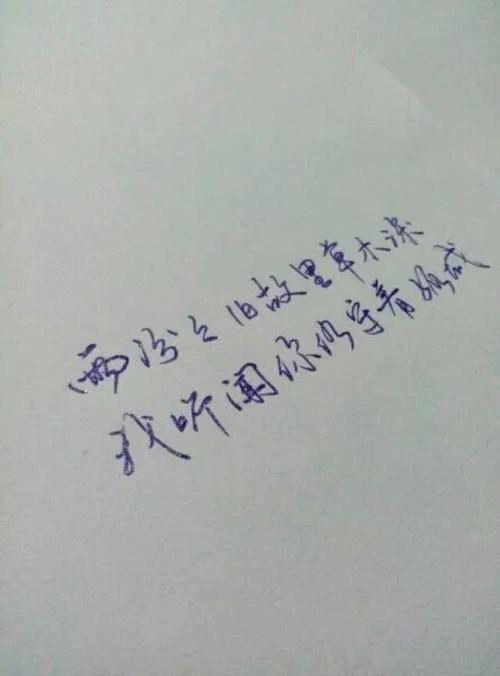 雨纷纷旧故里草木深
我听闻你仍守着孤城